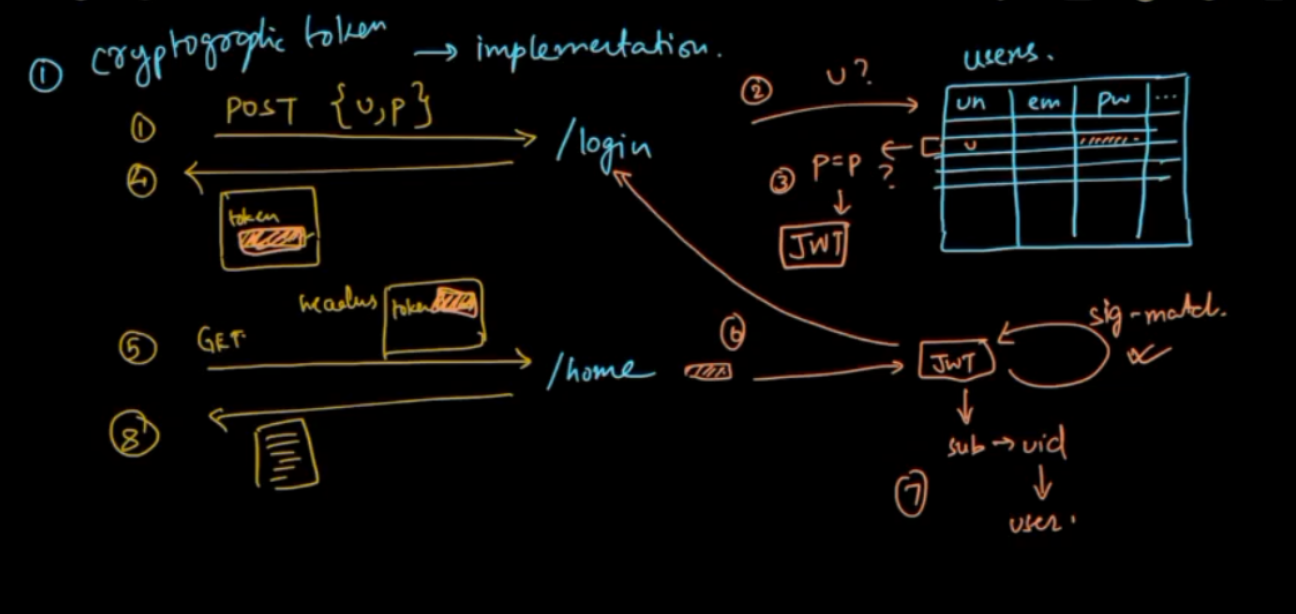 ① cryptographic token → implementation.
① POST {u,p}
/login
④
token
② u?
users.
un em pw ...
u
③ p=p ?
JWT
⑤ GET
headers token
/home
⑥
JWT
sig-match.
⑦ sub → uid
user.
⑧